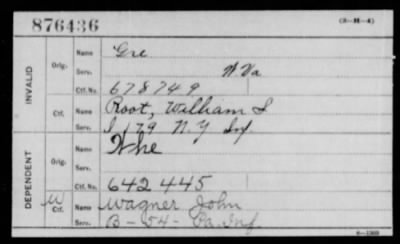 876436 (3-M-4)
INVALID
Orig. Name Gre
Serv. W Va
Ctf. No. 678749
Ctf. Name Root, William S
Serv. I 179 N.Y Inf
DEPENDENT
Orig. Name Whe
Serv.
Ctf. No. 642445
W Ctf. Name Wagner John
Serv. B - 54 - Pa. Inf.